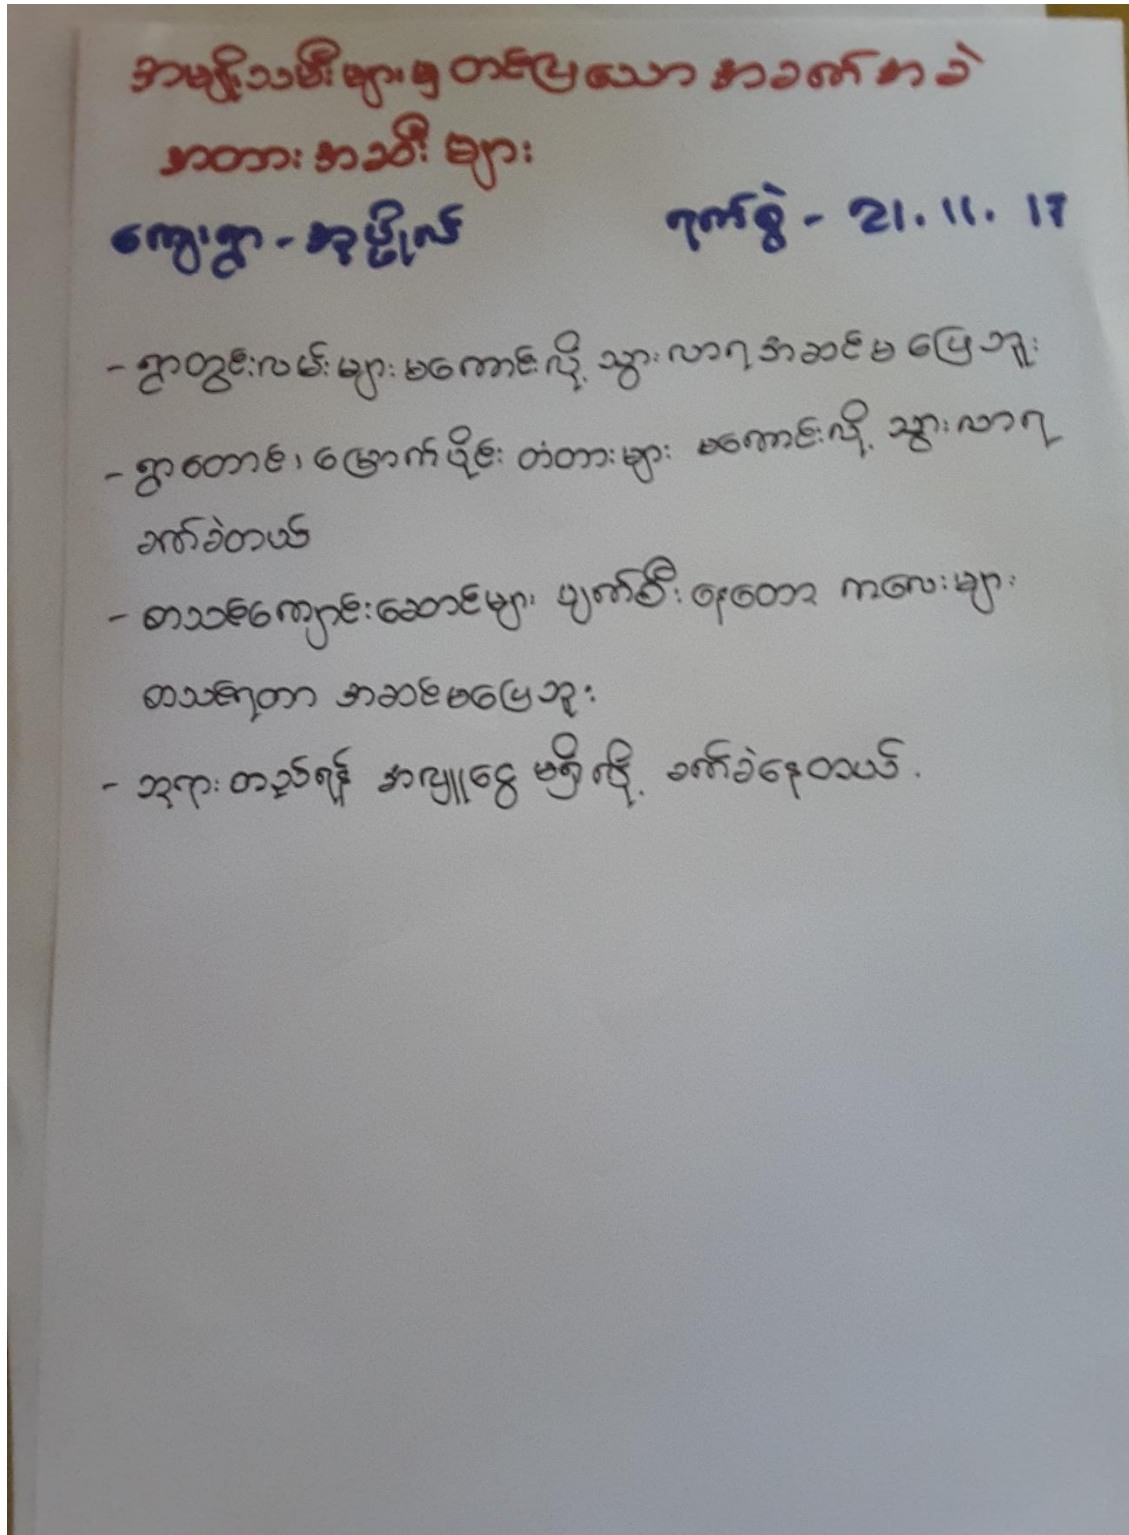 အမျိုးသမီးများမှ တင်ပြသော အခက်အခဲ
အတားအဆီး များ
ကျေးရွာ - ရက်စွဲ - 21. 11. 17
- ရွာတွင်းလမ်းများ မကောင်းလို့ သွားလာရ အဆင်မပြေဘူး
- ရွာတောင်၊ မြောက်ပိုင်း တံတားများ မကောင်းလို့ သွားလာရ
ခက်ခဲတယ်
- စာသင်ကျောင်းဆောင်များ ပျက်စီးနေတော့ ကလေးများ
စာသင်ရတာ အဆင်မပြေဘူး
- ဘုရား တည်ရန် အလှူငွေ မရှိလို့ ခက်ခဲနေတယ်.